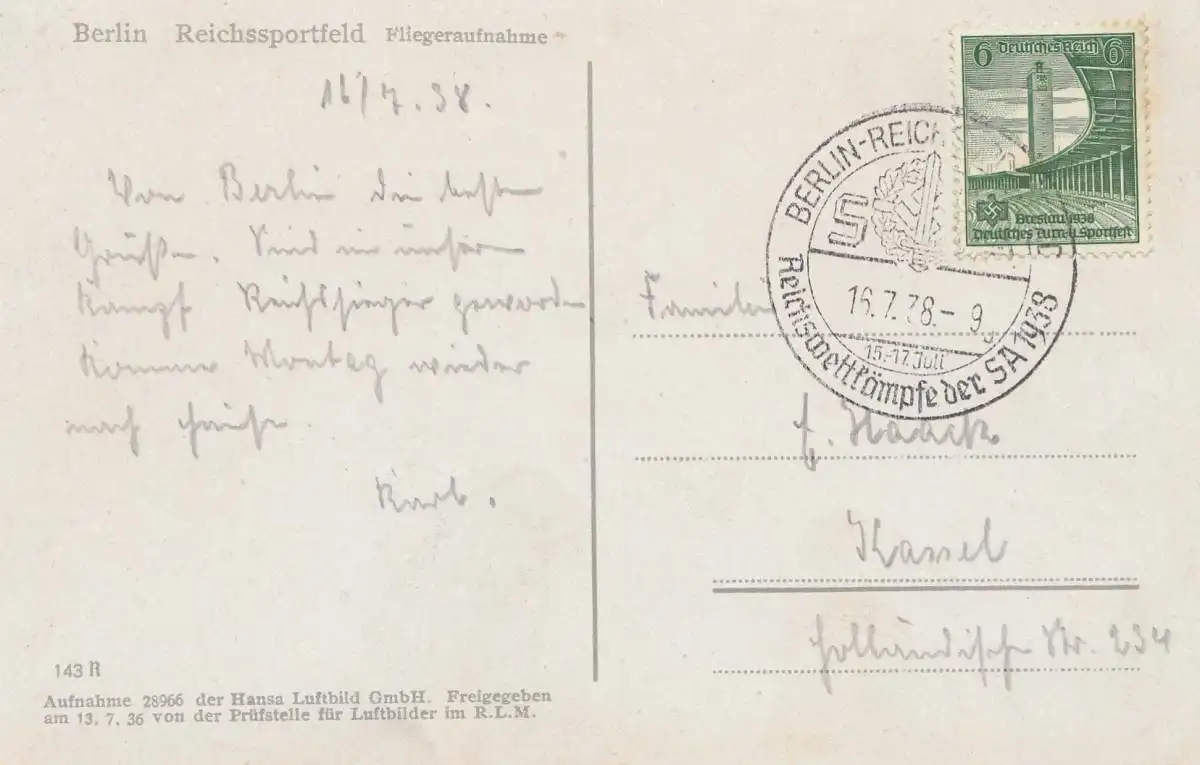 Berlin Reichssportfeld Fliegeraufnahme
7. 38.
Von Berlin die besten
Grüße. Sind in unserm
Kampf Reichssieger geworden
Komme Montag wieder
nach Hause.
Karl.
143 R
Aufnahme 28966 der Hansa Luftbild GmbH. Freigegeben
am 13. 7. 36 von der Prüfstelle für Luftbilder im R.L.M.
6 Deutsches Reich 6
Breslau 1938
Deutsches Turn-u. Sportfest
BERLIN-REICH
16.7.38.- 9
15.-17. Juli
Reichswettkämpfe der SA 1938
Familie
Haack
Kassel
Holländische Str. 234